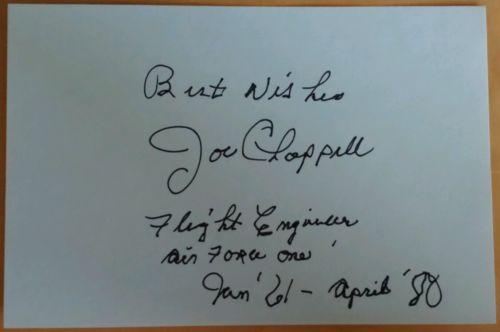 Best Wishes
Joe Chappell
Flight Engineer
Air Force One'
Jan' 61 - April '80